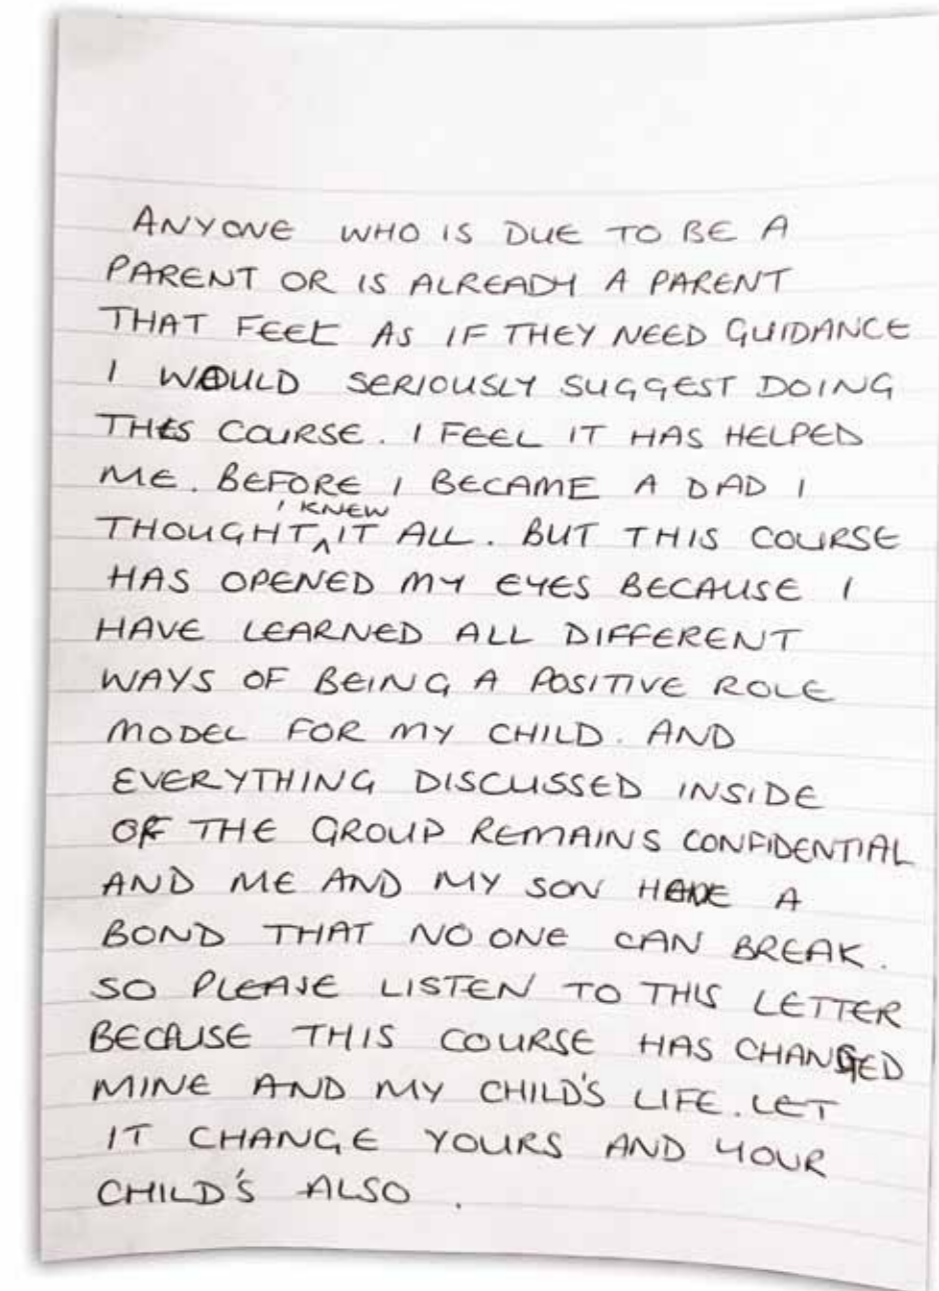 ANYONE WHO IS DUE TO BE A
PARENT OR IS ALREADY A PARENT
THAT FEEL AS IF THEY NEED GUIDANCE
I WOULD SERIOUSLY SUGGEST DOING
THIS COURSE. I FEEL IT HAS HELPED
ME. BEFORE I BECAME A DAD I
THOUGHT I KNEW IT ALL. BUT THIS COURSE
HAS OPENED MY EYES BECAUSE I
HAVE LEARNED ALL DIFFERENT
WAYS OF BEING A POSITIVE ROLE
MODEL FOR MY CHILD. AND
EVERYTHING DISCUSSED INSIDE
OF THE GROUP REMAINS CONFIDENTIAL
AND ME AND MY SON HAVE A
BOND THAT NO ONE CAN BREAK.
SO PLEASE LISTEN TO THIS LETTER
BECAUSE THIS COURSE HAS CHANGED
MINE AND MY CHILD'S LIFE. LET
IT CHANGE YOURS AND YOUR
CHILD'S ALSO.